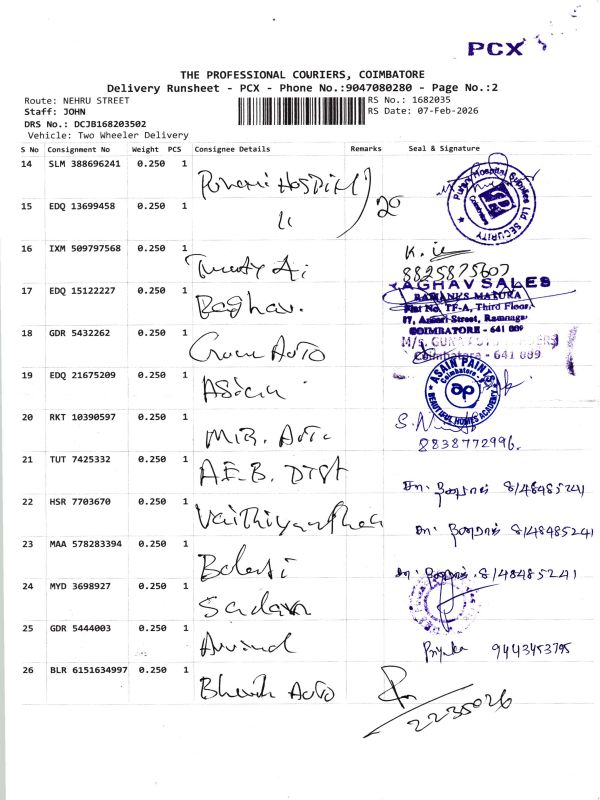 PCX
THE PROFESSIONAL COURIERS, COIMBATORE
Delivery Runsheet - PCX - Phone No.:9047080280 - Page No.:2
Route: NEHRU STREET
Staff: JOHN
DRS No.: DCJB168203502
Vehicle: Two Wheeler Delivery
RS No.: 1682035
RS Date: 07-Feb-2026
S No Consignment No Weight PCS Consignee Details Remarks Seal & Signature
14 SLM 388696241 0.250 1
Purani Hospital Supplies Ltd. SECURITY
15 EDQ 13699458 0.250 1 "
16 IXM 509797568 0.250 1
8825875607
17 EDQ 15122227 0.250 1 Raghav.
RAGHAV SALES
RAMANI'S MAYURA
Flat No. TF-A, Third Floor,
87, Ansari Street, Ramnagar
COIMBATORE - 641 009
18 GDR 5432262 0.250 1 Guru Auto
Coimbatore - 641 009
19 EDQ 21675209 0.250 1 Asian
ASAIN PAINTS
Coimbatore
ap
BEAUTIFUL HOMES ACADEMY
20 RKT 10390597 0.250 1 M.B. Auto
8838772996.
21 TUT 7425332 0.250 1 A.E.B. Dist
8148485241
22 HSR 7703670 0.250 1 Vaithiyanathan
8148485241
23 MAA 578283394 0.250 1 Balaji
8148485241
24 MYD 3698927 0.250 1 Sadavn
25 GDR 5444003 0.250 1 Arvind
Priyka 9443453795
26 BLR 6151634997 0.250 1 Bhavik Auto
2235026